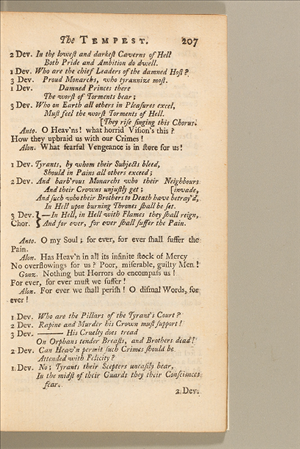 The TEMPEST. 207
2 Dev. In the lowest and darkest Caverns of Hell
Both Pride and Ambition do dwell.
1 Dev. Who are the chief Leaders of the damned Host?
3 Dev. Proud Monarchs, who tyrannize most.
1 Dev. Damned Princes there
The worst of Torments bear;
3 Dev. Who on Earth all others in Pleasures excel,
Must feel the worst Torments of Hell.
[They rise singing this Chorus.
Anto. O Heav'ns! what horrid Vision's this?
How they upbraid us with our Crimes!
Alon. What fearful Vengeance is in store for us!
1 Dev. Tyrants, by whom their Subjects bleed,
Should in Pains all others exceed;
2 Dev. And barb'rous Monarchs who their Neighbours
And their Crowns unjustly get; [invade,
And such who their Brothers to Death have betray'd,
In Hell upon burning Thrones shall be set.
3 Dev. } —In Hell, in Hell with Flames they shall reign,
Chor. } And for ever, for ever shall suffer the Pain.
Anto. O my Soul; for ever, for ever shall suffer the
Pain.
Alon. Has Heav'n in all its infinite stock of Mercy
No overflowings for us? Poor, miserable, guilty Men!
Gonz. Nothing but Horrors do encompass us!
For ever, for ever must we suffer!
Alon. For ever we shall perish! O dismal Words, for
ever!
1 Dev. Who are the Pillars of the Tyrant's Court?
2 Dev. Rapine and Murder his Crown must support!
3 Dev. —— His Cruelty does tread
On Orphans tender Breasts, and Brothers dead!
2 Dev. Can Heav'n permit such Crimes should be
Attended with Felicity?
1 Dev. No; Tyrants their Scepters uneasily bear,
In the midst of their Guards they their Consciences
fear.
2 Dev.